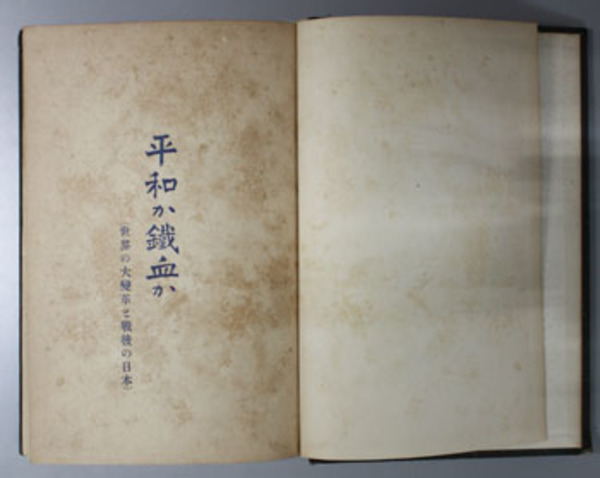 平和か鐵血か
(世界の大變革と戰後の日本)